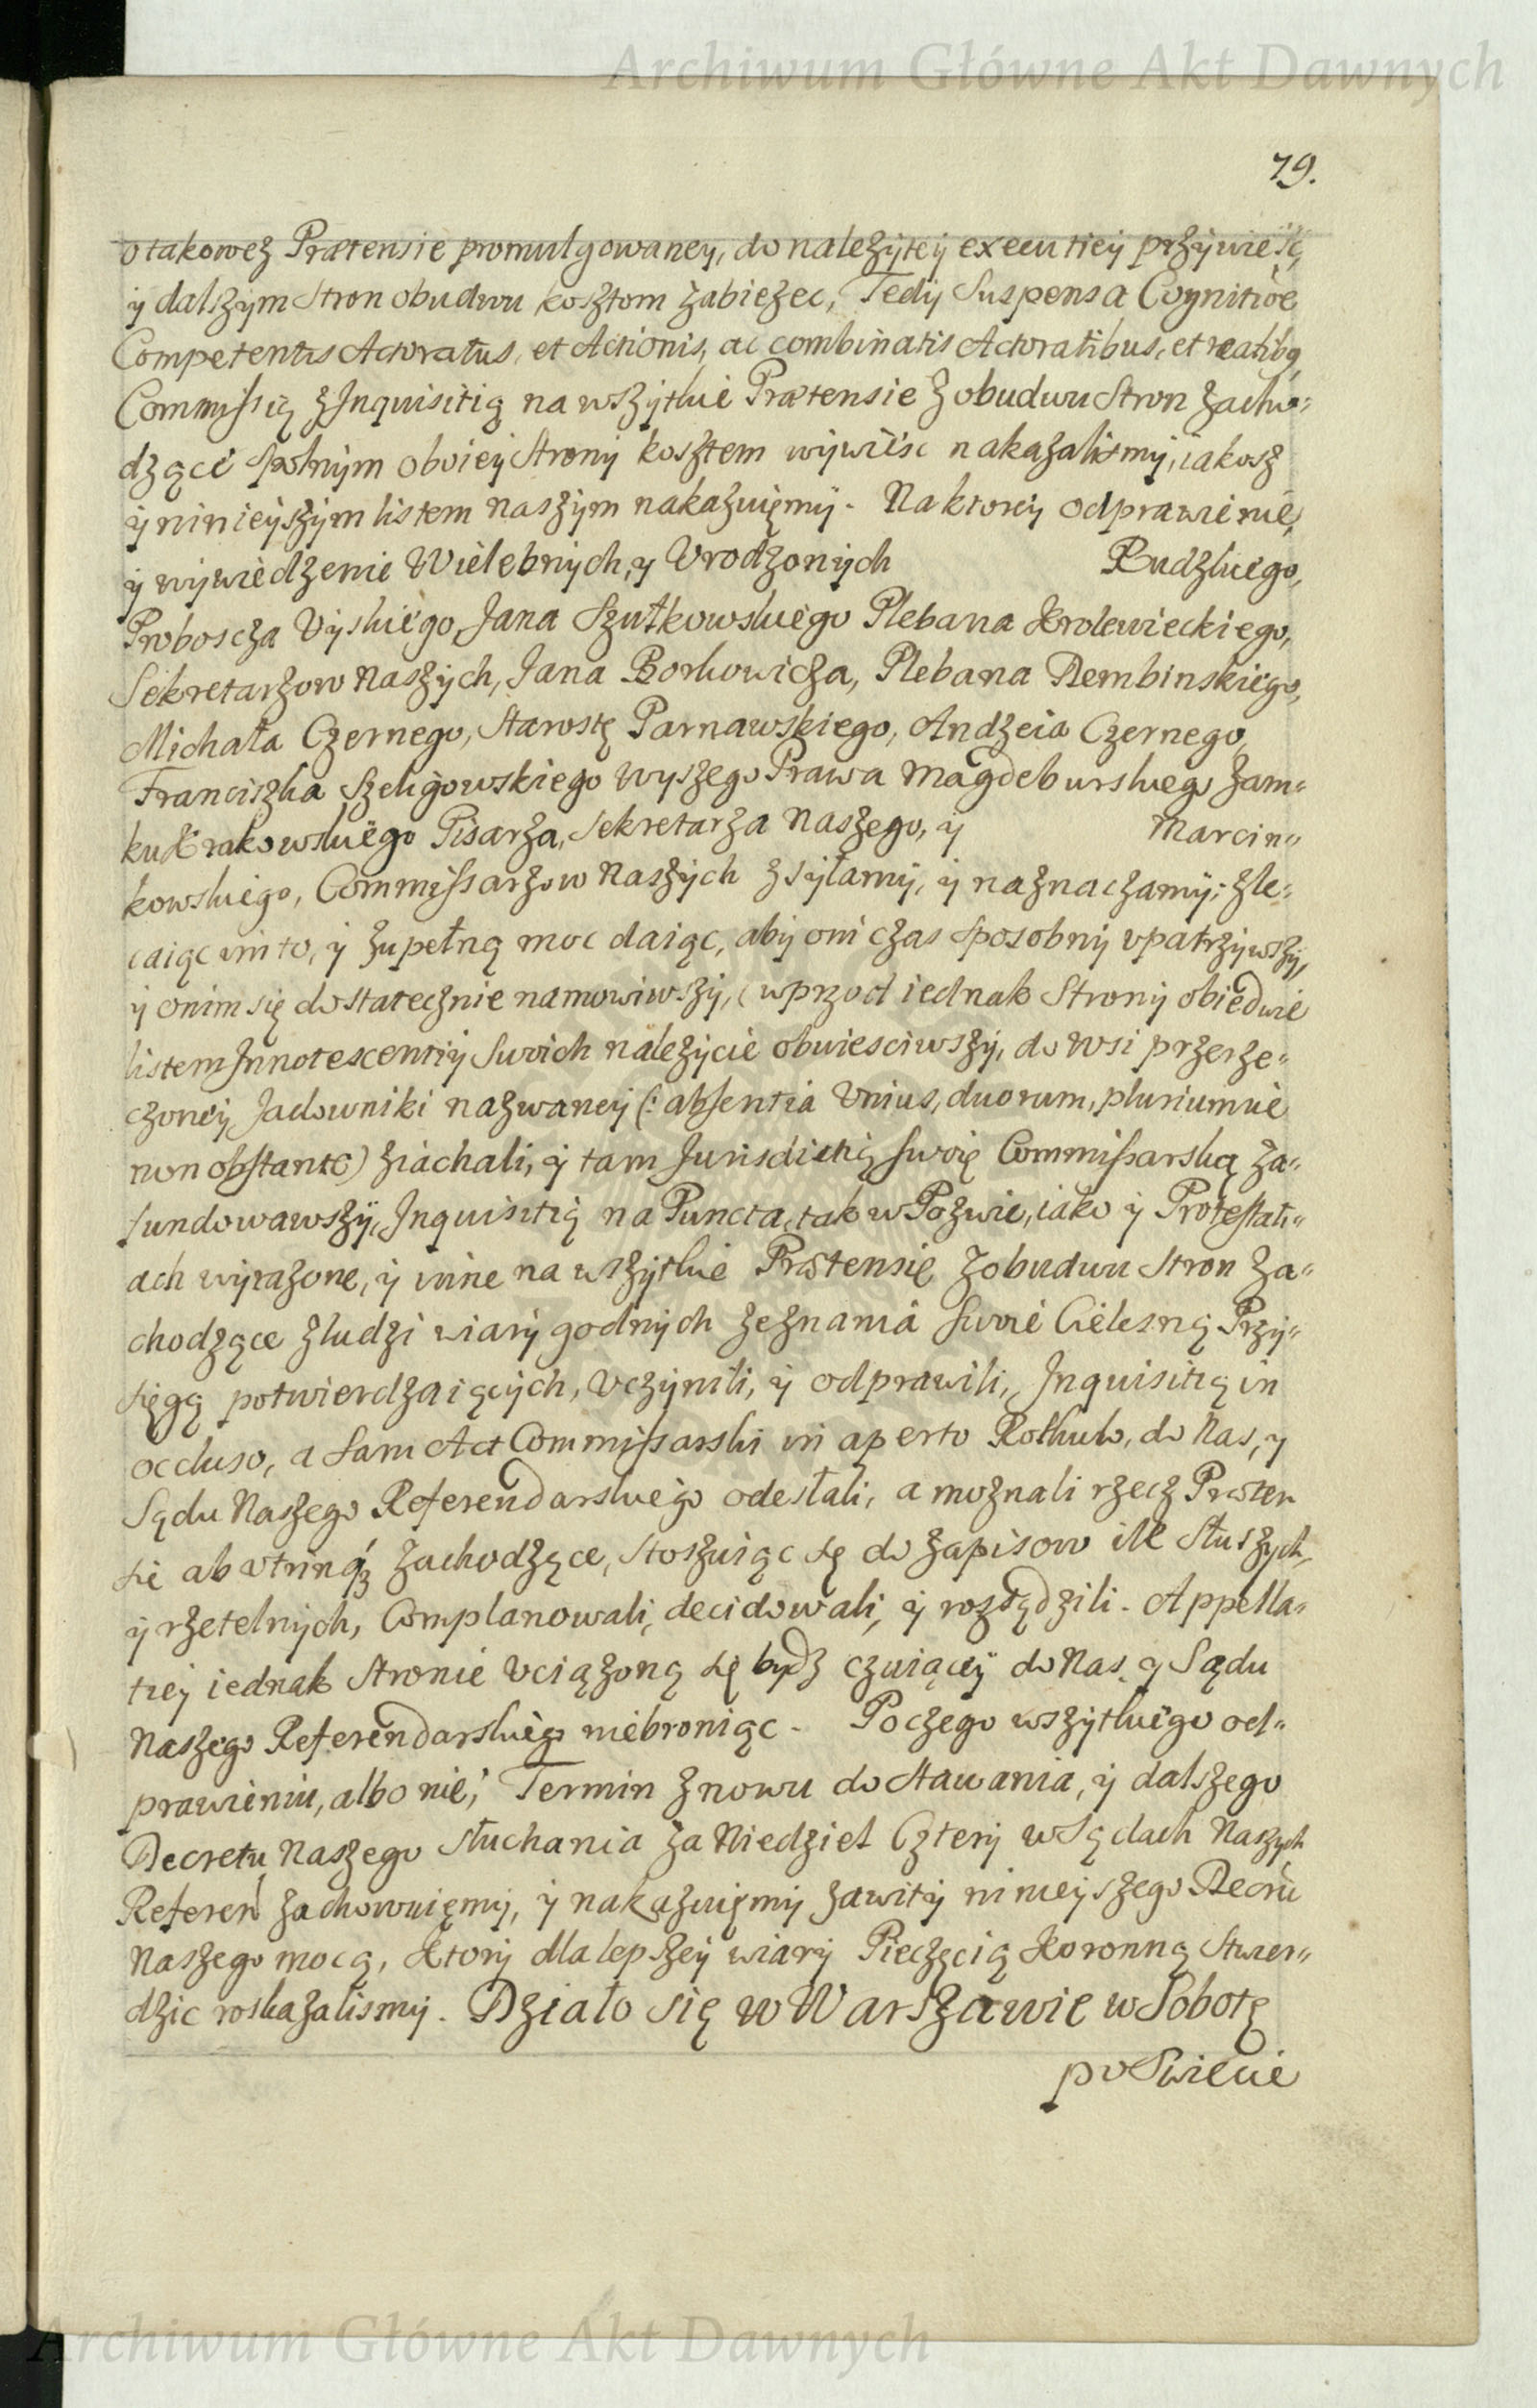 Archiwum Główne Akt Dawnych
79.
o takowez Prætensie promulgowaney, do nalezytey executiey przywiesć,
y dalszym Stron obudwu kosztom zabiezec, Tedy Suspensa Cognitióe
Competentis Actoratus, et Actionis, ac combinatis Actoratibus, et reatibq
Commissią z Inquisitią na wszytkie Prætensie z obudwu Stron zacho=
dzące spolnym oboiey Strony kosztem wywiesc nakazalismy, iakosz
y ninieyszym listem naszym nakazuięmy. Na ktorey odprawienie,
y wywiedzenie Wielebnych, y Vrodzonych Rudzkiego,
Proboscza Uyskiego, Jana Szutkowskiego Plebana Krolewieckiego,
Sekretarzow Naszych, Jana Borkowicza, Plebana Dembinskiego,
Michała Czernego, Starostę Parnawskiego, Andzeia Czernego,
Franciszka Szeligowskiego wyszego Prawa Magdeburskiego Zam=
ku Krakowskiego Pisarza, Sekretarza Naszego, y Marcin=
kowskiego, Commissarzow Naszych zsyłamy, y naznaczamy; zle=
caiąc im to, y zupełną moc daiąc, aby oni czas sposobny vpatrzywszy,
y onim się dostatecznie namowiwszy, (wprzod iednak Strony obiedwie
listem Innotescentiy Swoich nalezycie obwiesciwszy, do wsi przerze=
czoney Jadowniki nazwaney (: absentia Vnius, duorum, pluriumue
non obstante) ziachali, y tam Jurisdictią swoię Commissarską za=
fundowawszy, Inquisitią na Puncta, tak w Pozwie, iako y Protestati=
ach wyrazone, y inne na wszytkie Prætensię z obudwu Stron za=
chodzące z ludzi wiary godnych zeznania swoie Cielesną Przy=
sięgą potwierdzaiących, Vczynili, y odprawili, Inquisitią in
occluso, a sam Act Commissarski in aperto Rothulo, do Nas, y
Sądu Naszego Referendarskiego odesłali, a moznali rzecz Præten
sie ab vtrinq́ȝ zachodzące, stosuiąc sę do zapisow ile słuszych,
y rzetelnych, Complanowali, decidowali, y rozsądzili. Appella=
tiey iednak Stronie Vciązoną sę bydz czuiącey do Nas, y Sądu
Naszego Referendarskiego niebroniąc. Po czego wszytkiego od=
prawieniu, albo nie, Termin znowu do stawania, y dalszego
Decretu Naszego słuchania za Niedziel Cztery w Sądach Naszych
Referen̄ zachowuięmy, y nakazuięmy zawity ninieyszego Decrū
Naszego mocą, ktory dla lepszey wiary Pieczęcią Koronną stwier=
dzic roskazalismy. Działo się w Warszawie w Sobotę
po Swiecie
Archiwum Główne Akt Dawnych